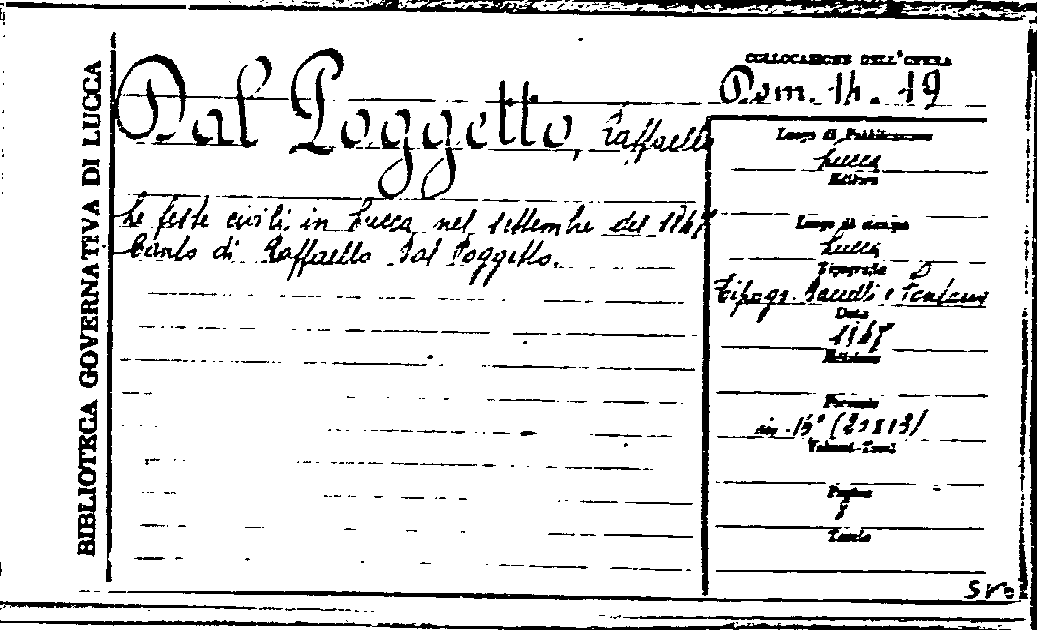 BIBLIOTECA GOVERNATIVA DI LUCCA
COLLOCAZIONE DELL'OPERA
Dal Poggetto, Raffaello
Le feste civili in Lucca nel settembre del 1847
Canto di Raffaello Dal Poggetto.
Luogo di Pubblicazione
Lucca
Editore
Luogo di stampa
Lucca
Tipografia
Tipogr.
Data
1847
Edizione
Formato
Volumi-Tomi
Pagine
8
Tavole